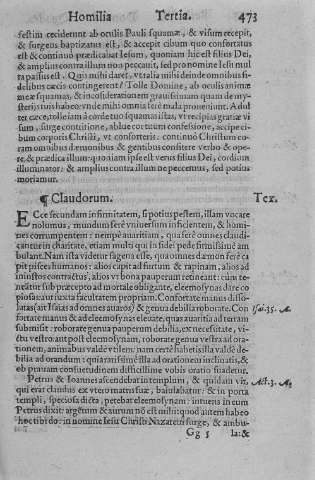 Homilia Tertia. 473
festim ceciderunt ab oculis Pauli squamæ, & visum recepit,
& surgens baptizatus est, & accepit cibum quo confortatus
est & continuo prædicabat Iesum, quoniam hic est filius Dei,
& amplius contra illum non peccauit, sed pro nomine Iesu mul
ta passus est. Quis mihi daret, vt talia misi deinde omnibus fi-
delibus cæcis contingerent? Tolle Domine, ab oculis animæ
meæ squamas, & inconsiderationem grauissimam quam de my-
sterijs tuis habeo: vnde mihi omnia ferè mala proueniunt. Adul
ter cæce, tolle iam à corde tuo squamas istas, vt recipias gratiæ vi
sum, surge contritione, abluere cum confessione, accipe ci-
bum corporis Christi, vt conforteris: continuò Christum co-
ram omnibus dæmonibus & gentibus consitere verbo & ope-
re, & prædica illum: quoniam ipse est verus filius Dei, cordium
illuminator, & amplius contra illum ne peccemus, sed potius
moriamur.
¶ Claudorum. Tex.
ECce secundam infirmitatem, si potius pestem, illam vocare
nolumus, mundum ferè vniuersum inficientem, & homi-
nes corrumpentem: nempè auaritiam, qua ferè omnes claudi-
cantur in charitate, etiam multi qui in fide pede firmissimè am
bulant. Nam ista videtur sagena esse, qua omnes dæmon ferè ca
pit pisces humanos: alios capit ad furtum & rapinam, alios ad
iniustos contractus, alios vt bona pauperum retineant: cùm te-
neatur sub præcepto ad mortale obligante, eleemosynas dare co
piosas aut iuxta facultatem propriam. Confortate manus disso-
lutas (ait Isaias ad omnes auaros) & genua debilia roborate. Con Isai. 35. A.
fortate manus & ad eleemosynas eleuate, quia auaritia ad terram
submisit: roborate genua pauperum debilia, ex necessitate, vi-
ctu vestro: aut post eleemosynam, roborate genua vestra ad ora-
tionem, animabus valdè vtilem, nam certè habetis illa valdè de-
bilia ad orandum: quia rarissimè illa ad orationem inclinatis, &
ob prauam consuetudinem difficillimè vobis oratio suadetur.
Petrus & Ioannes ascendebat in templum, & quidam vir, Act. 3. A.
qui erat claudus ex vtero matris suæ, baiulabatur: & in porta
templi, speciosa dicta, petebat eleemosynam: intuens in eum
Petrus dixit: argentum & aurum non est mihi: quod autem habeo
hoc tibi do: in nomine Iesu Christi Nazareni surge, & ambu-
Gg 5 la: &